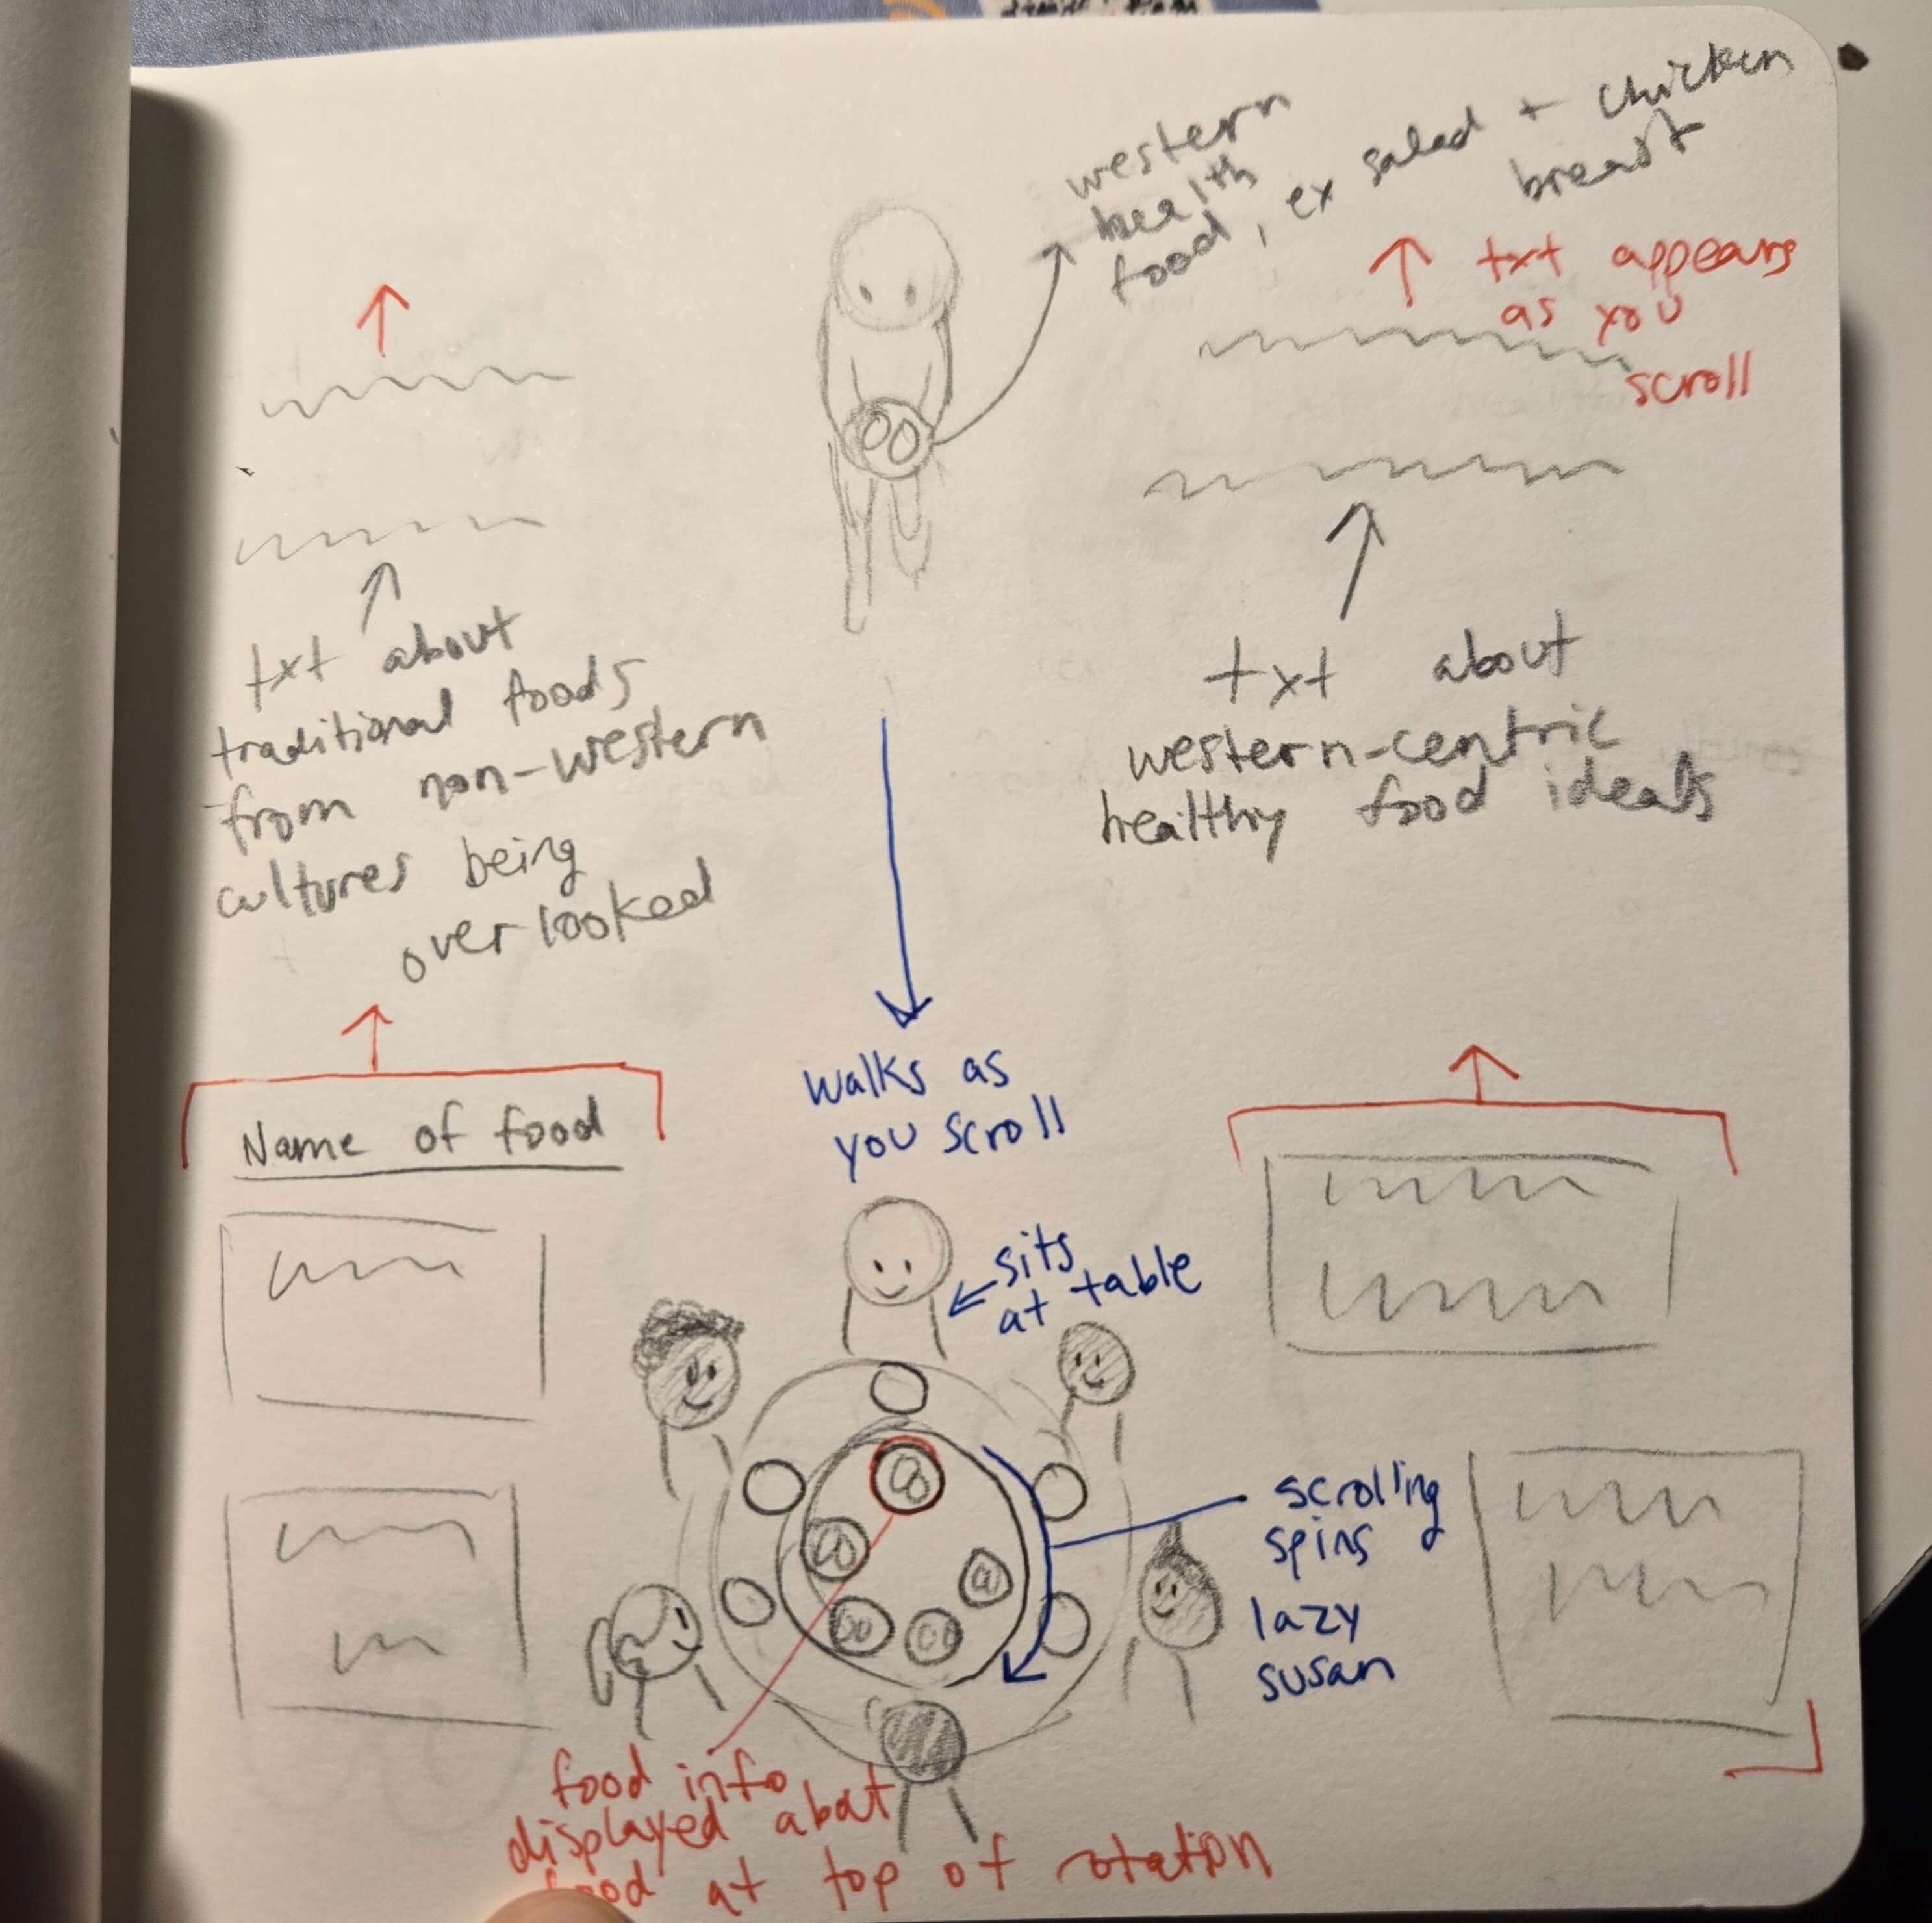 western
health
food, ex salad + chicken
breast
txt appears
as you
scroll
txt about
traditional foods
from non-western
cultures being
overlooked
txt about
western-centric
healthy food ideals
walks as
you scroll
Name of food
sits
at table
scrolling
spins
lazy
susan
food info
displayed about
food at top of rotation